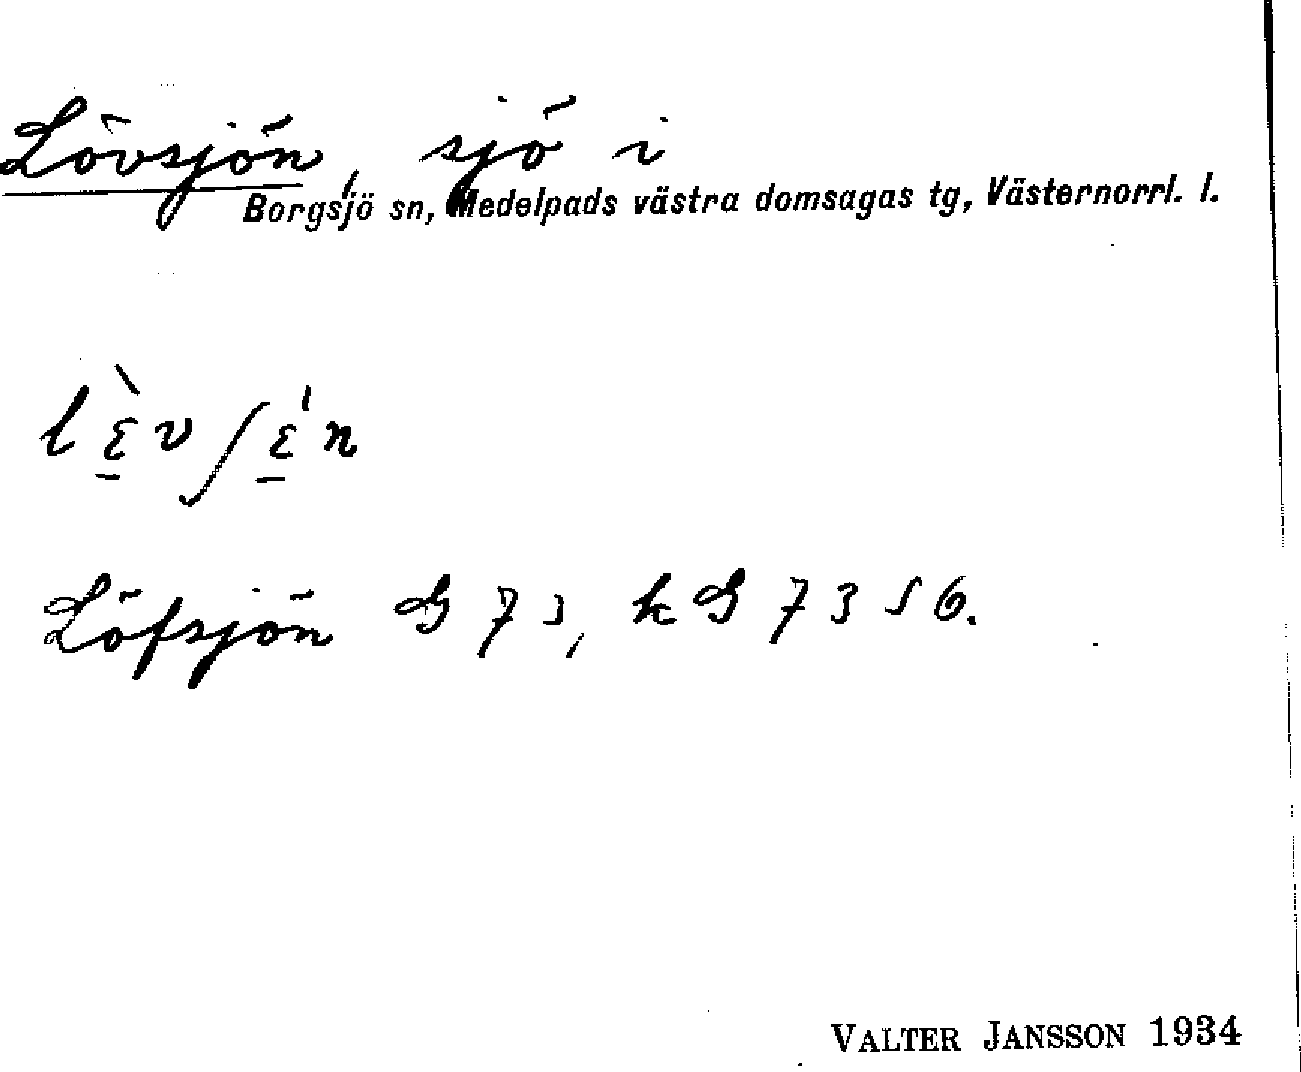 Lövsjön, sjö i
Borgsjö sn, Medelpads västra domsagas tg, Västernorrl. l.
lɛ̠̀vʃɛ̠́n
Löfsjön G 73, kG 7356.
VALTER JANSSON 1934